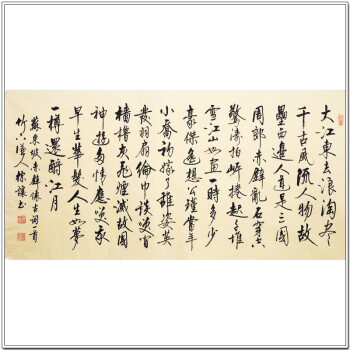 大江東去浪淘尽
千古風流人物故
壘西邊人道是三國
周郎赤壁亂石穿空
驚濤拍岸捲起千堆
雪江山如畫一時多少
豪傑遙想公瑾當年
小喬初嫁了雄姿英
發羽扇綸巾談笑間
檣櫓灰飛煙滅故國
神遊多情應笑我
早生華髮人生如夢
一樽還酹江月
蘇東坡赤壁懷古詞一首
書